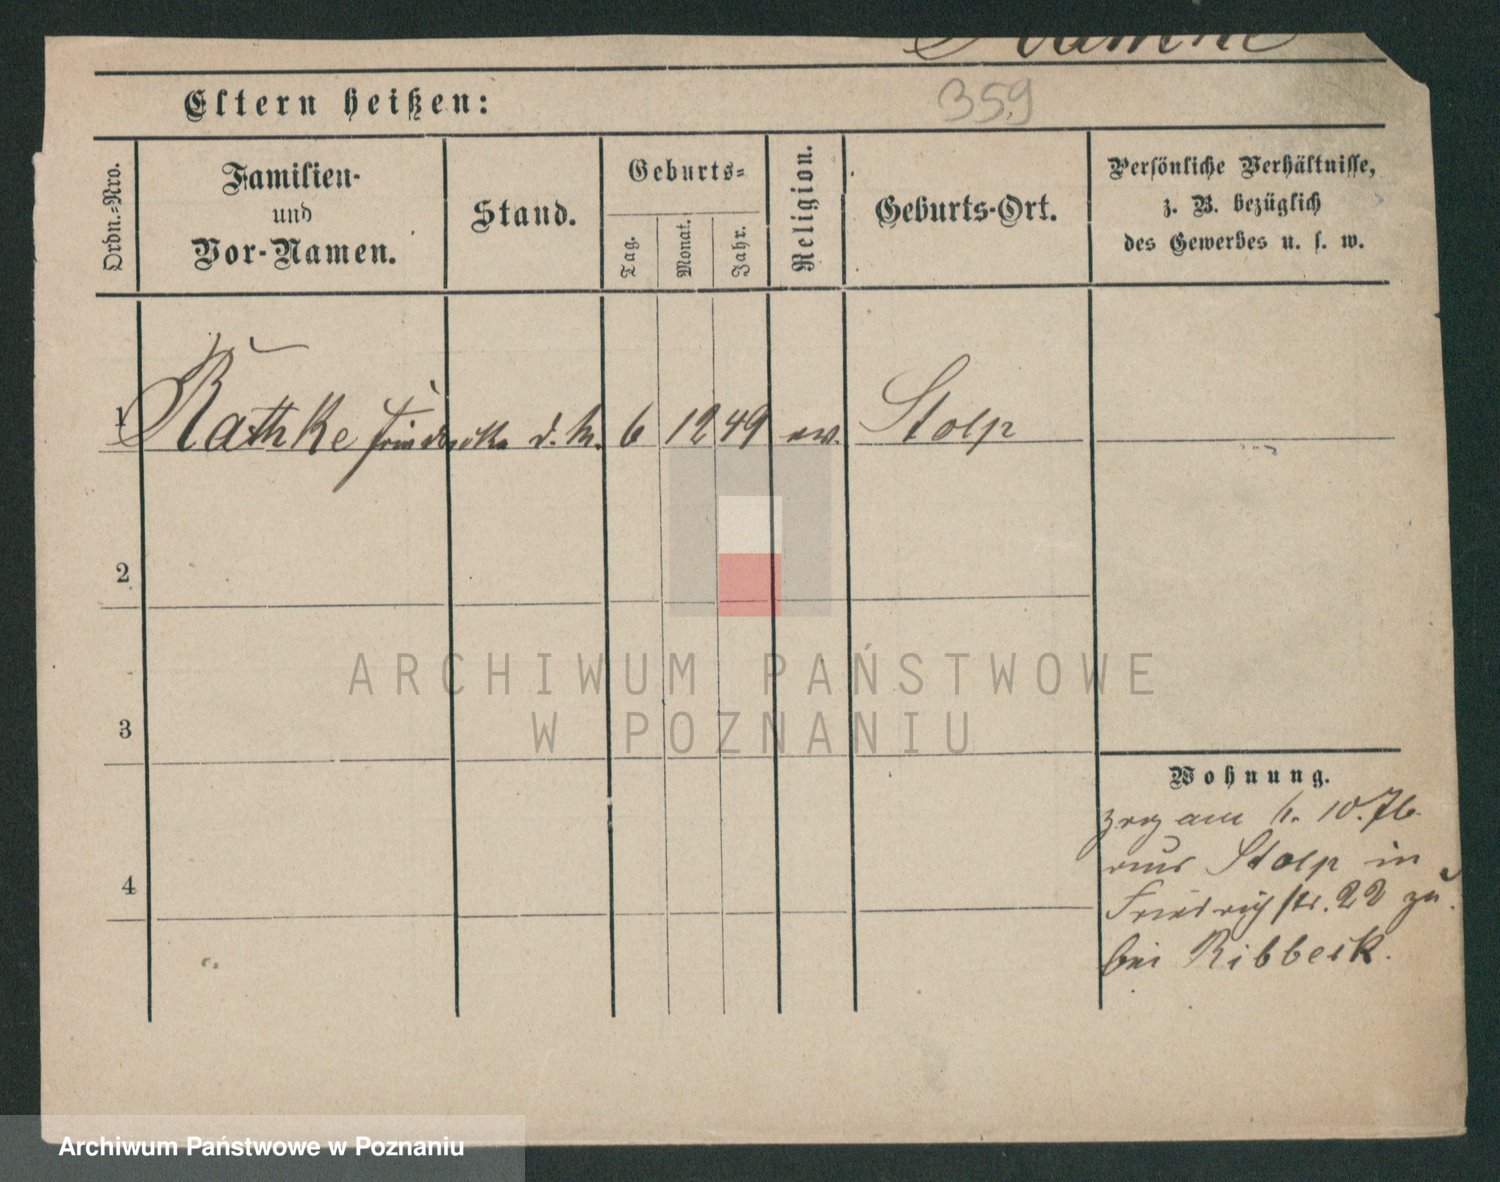 359
Eltern heißen:
Ordn.-Nro.
Familien- und Vor-Namen.
Stand.
Geburts-
Tag.
Monat.
Jahr.
Religion.
Geburts-Ort.
Persönliche Verhältnisse,
z. B. bezüglich
des Gewerbes u. s. w.
1 Rathke Friederike d. M. 6 12 49 ev. Stolp
2
3
4
Wohnung.
zog am 10. 76
aus Stolp in
Friedrichstr. 22 zu
bei Ribbeck.
ARCHIWUM PAŃSTWOWE
W POZNANIU
Archiwum Państwowe w Poznaniu